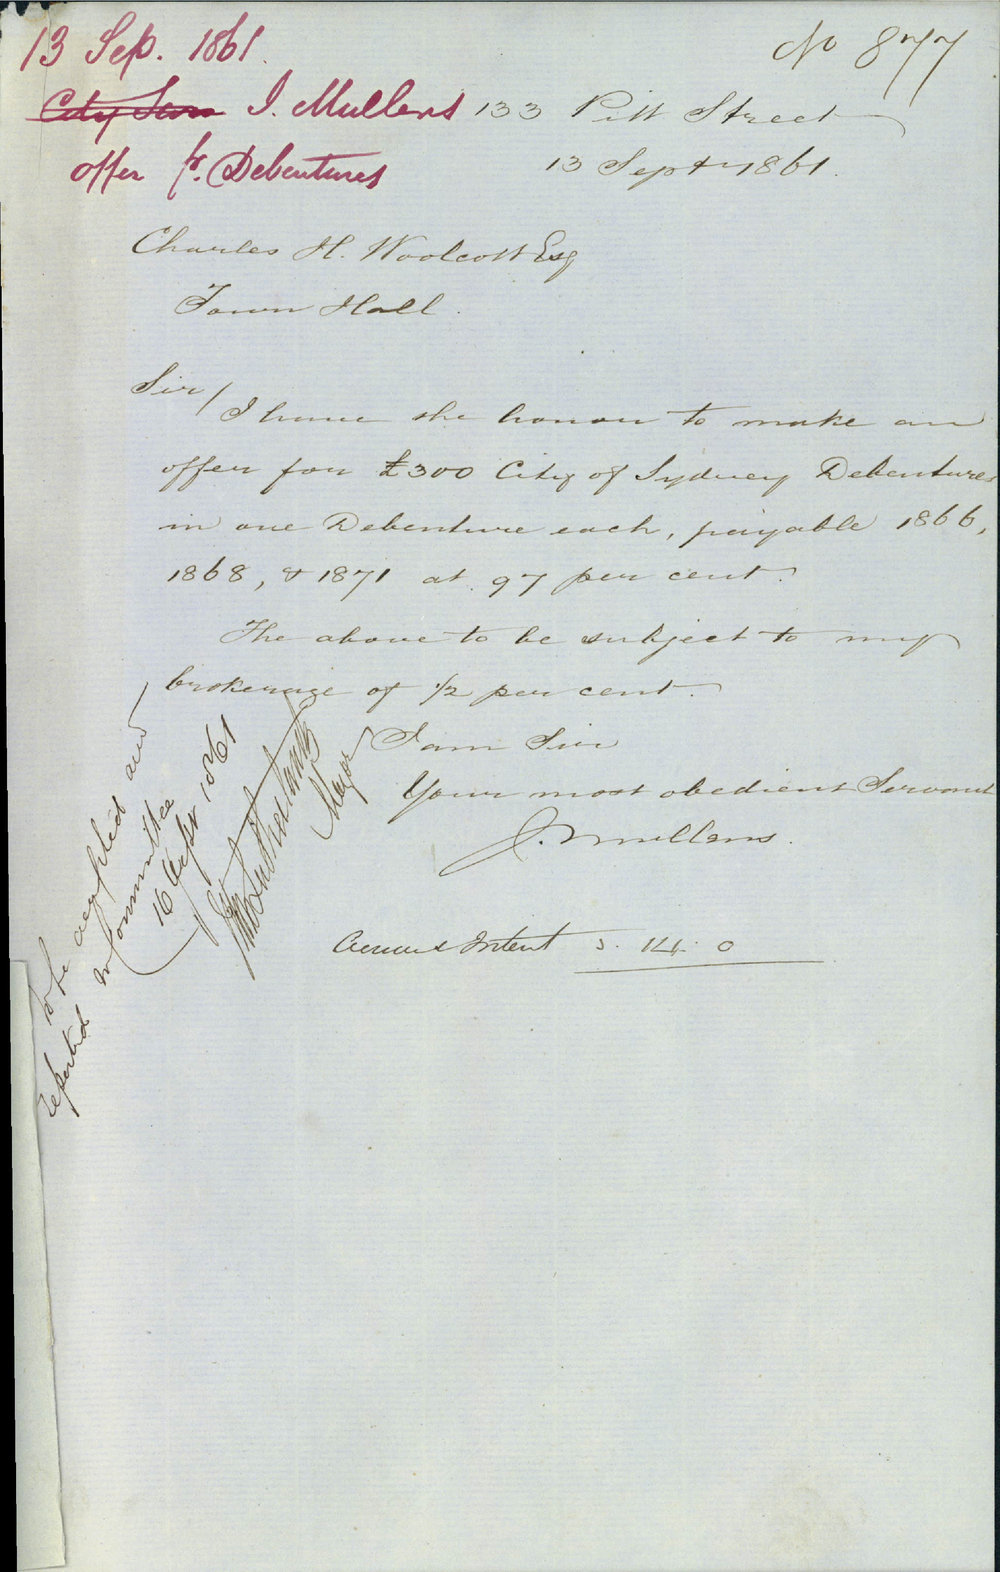 13 Sep. 1861.
No 877
City Sur J. Mullens
offer fr. Debentures
133 Pitt Street
13 Septr 1861.
Charles H. Woolcott Esq
Town Hall.
Sir/
I have the honor to make an
offer for £300 City of Sydney Debentures
in one Debenture each, payable 1866,
1868, & 1871 at 97 per cent.
The above to be subject to my
brokerage of 1/2 per cent.
I am Sir
Your most obedient Servant
J. Mullens.
To be accepted and
reported to Committee
16 Sept 1861
Mayor
Accrued Interest 5. 14. 0